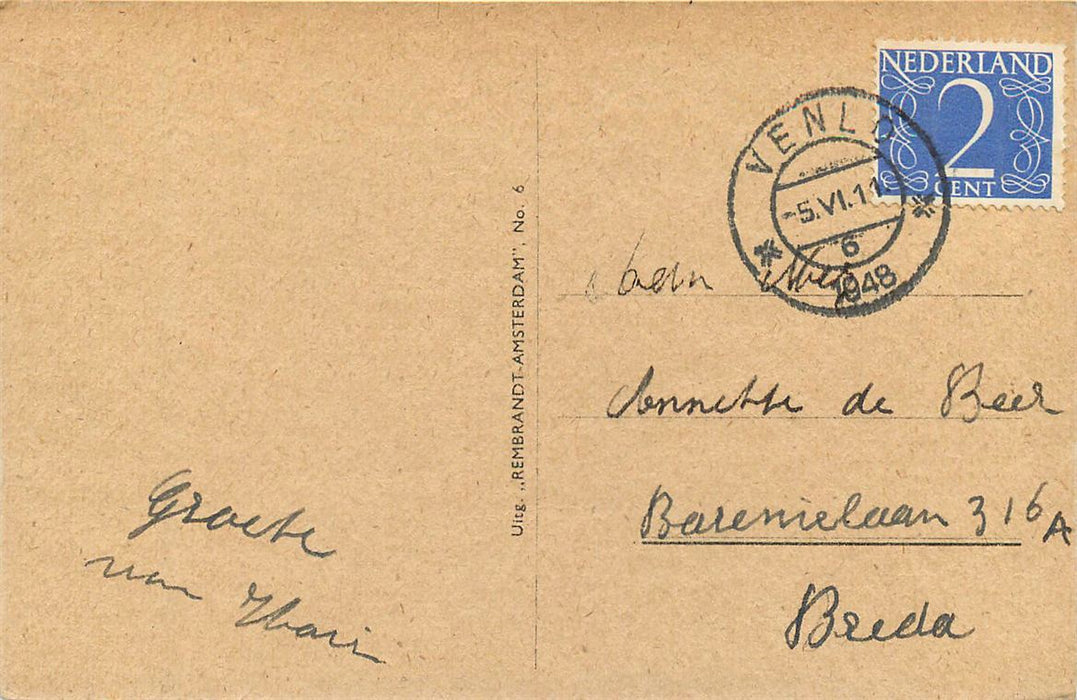 NEDERLAND
2
CENT
VENLO
-5.VI.11
6
1948
Uitg. „REMBRANDT-AMSTERDAM”, No. 6
Aan
Annette de Beer
Baronielaan 316A
Breda
Groete
van